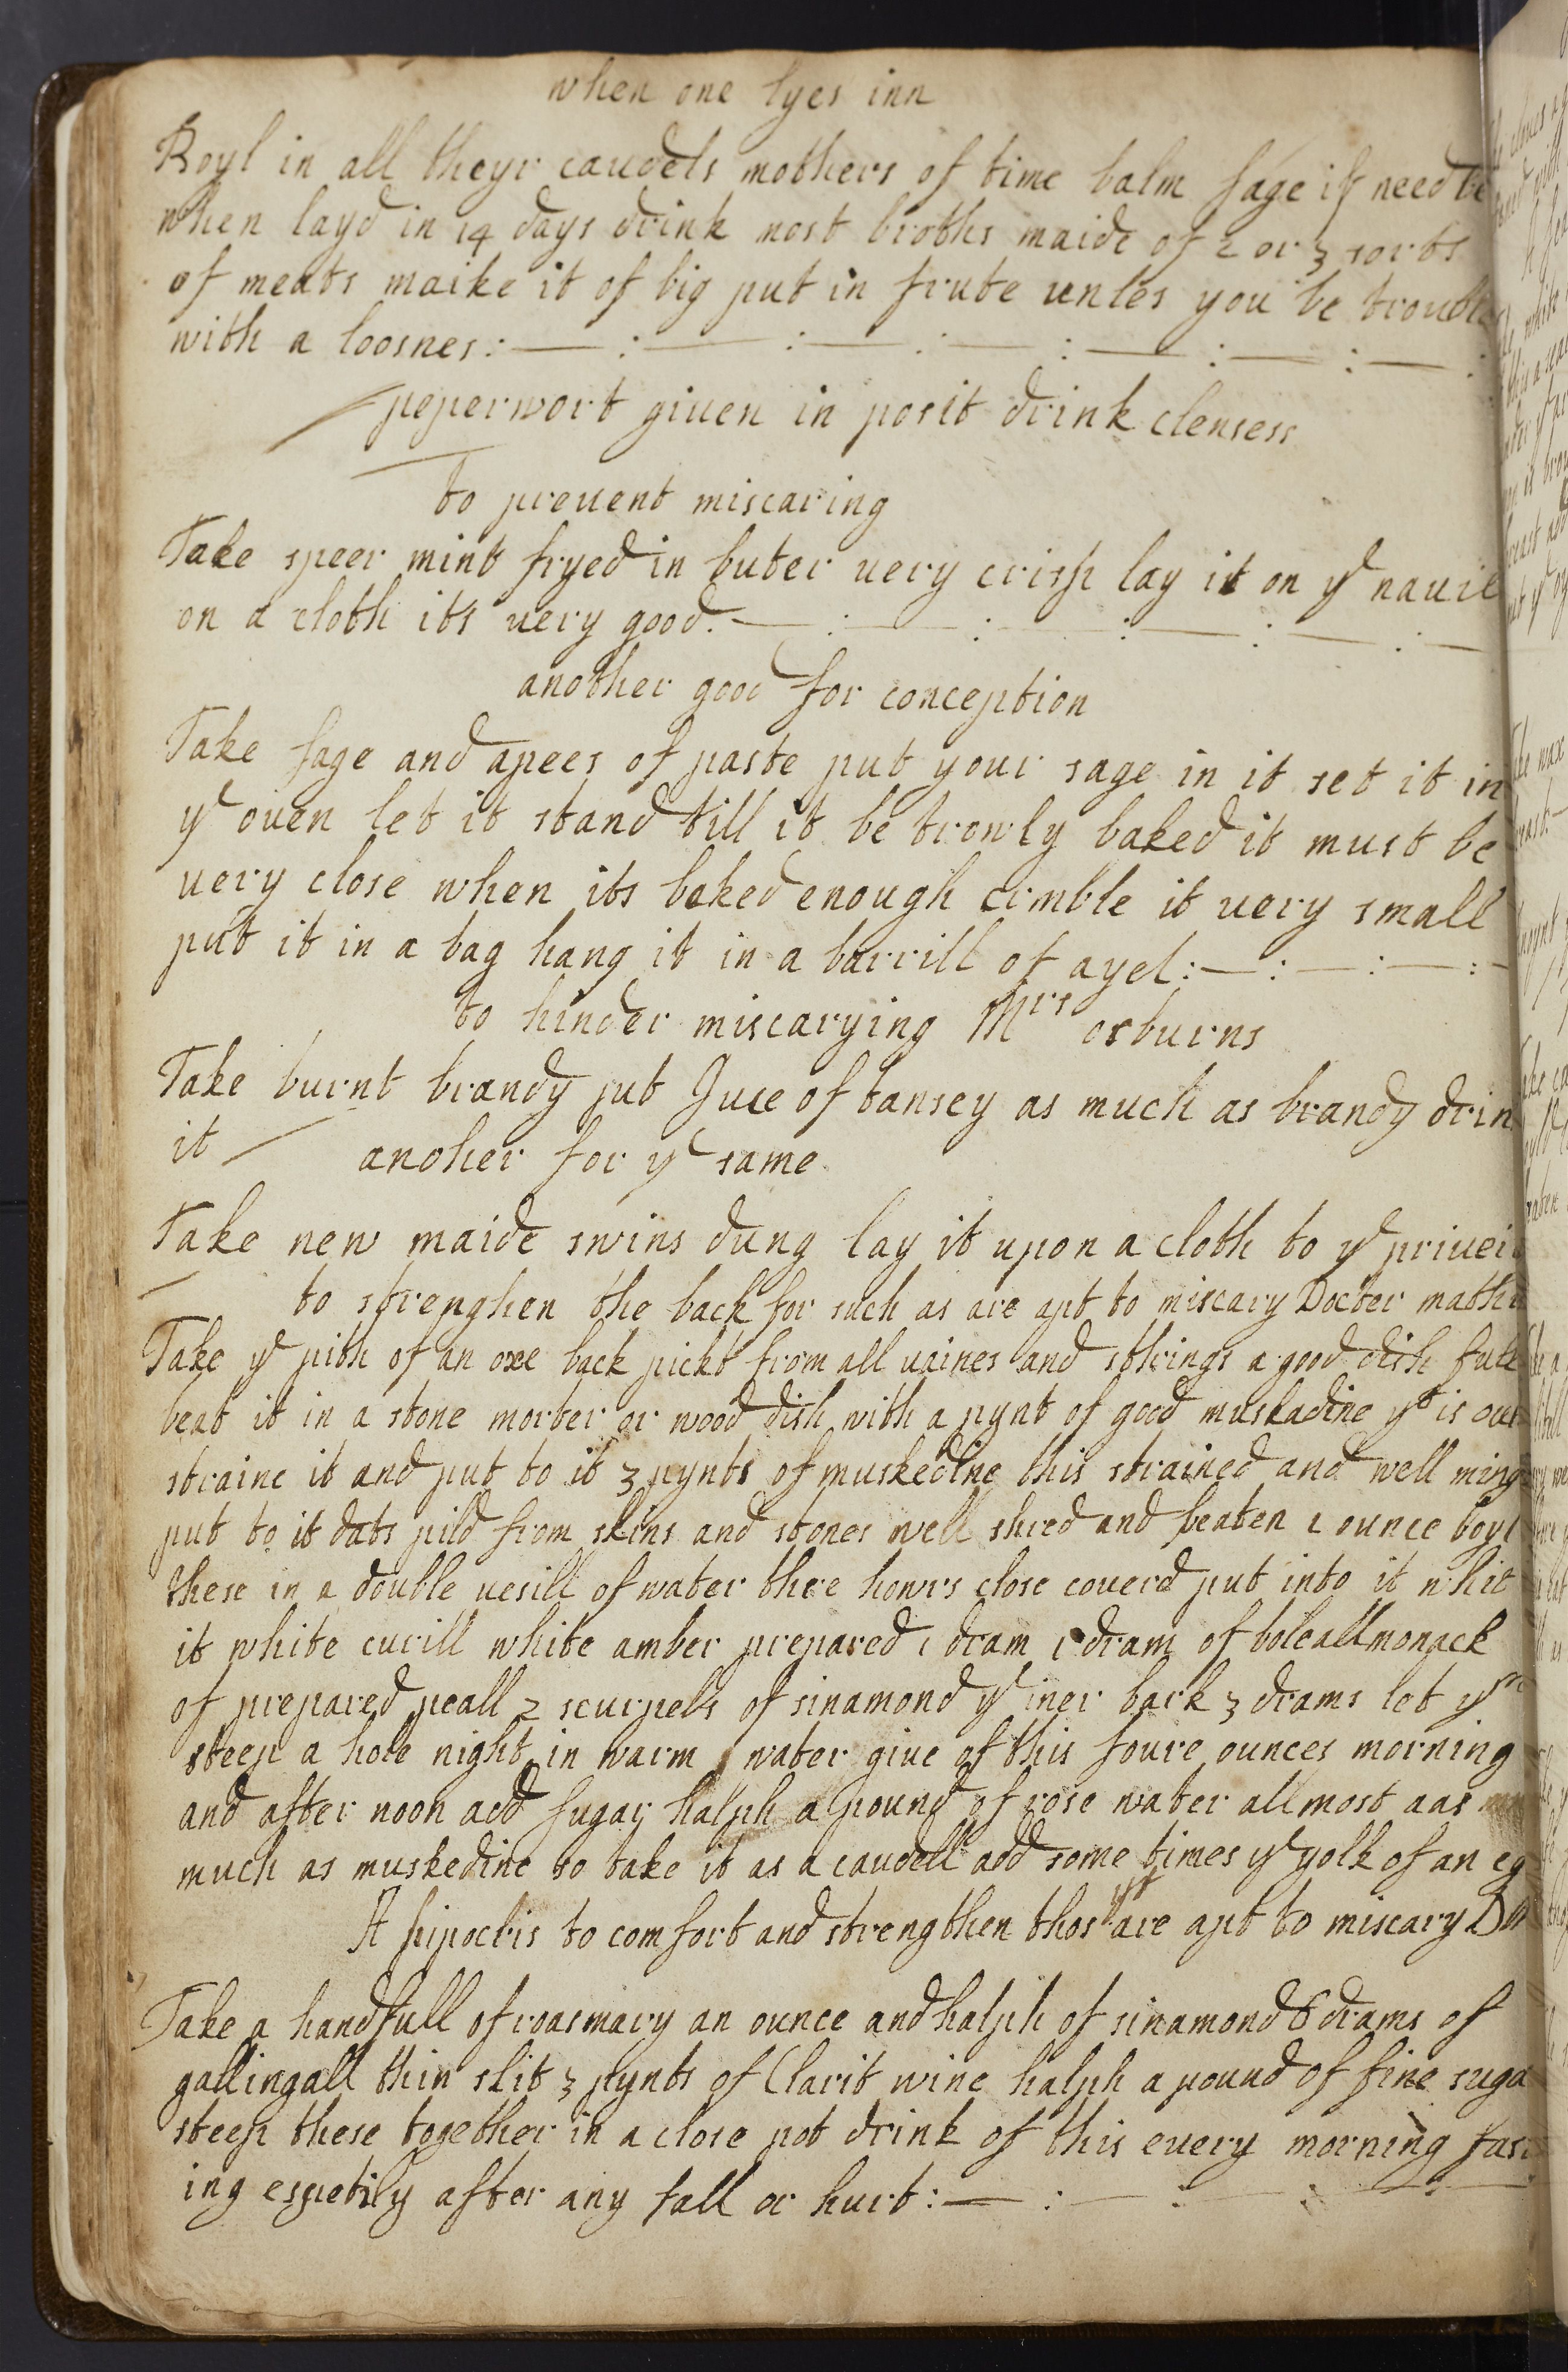 when one lyes inn
Boyl in all theyr caudels mothers of time balm sage if need be
when layd in 14 days drink most broths maide of 2 or 3 sorts
of meats maike it of big put in frute unles you be trouble
with a loosnes:— : — : — : — : — : — : — :
peperwort giuen in posit drink clensess
to preuent miscaring
Take speer mint fryed in buter uery crisp lay it on yͤ nauil
on a cloth its uery good.— : — : — : — : — : —
another good for conception
Take sage and apees of paste put your sage in it set it in
yͤ ouen let it stand till it be trowly baked it must be
uery close when its baked enough crmble it uery small
put it in a bag hang it in a barrill of ayel:— : — : — : —
to hinder miscarying Mʳˢ osburns
Take burnt brandy put Juce of tansey as much as brandy drin
it — anoher for yͤ same
Take new maide swins dung lay it upon a cloth to yͤ priuei
to strenghen the back for such as are apt to miscary Docter math
Take yͤ pith of an oxe back pickt from all uaines and sthrings a good dish full
beat it in a stone morter or wood dish with a pynt of good muskadine yͭ is
straine it and put to it 3 pynts of muskedine this strained and well ming
put to it dats pild from skins and stones well shred and beaten 1 ounce boyl
these in a double uesill of water thre howrs close couerd put into it whit
it white curill white amber prepared 1 dram 1 dram of boleallmonack
of prepared peall 2 scurpels of sinamond yͤ iner bark 3 drams let yᵐ
steep a hole night in warm water giue of this foure ounces morning
and after noon add sugar halph a pound of rose water allmost aas
much as muskedine so take it as a caudell add some times yͤ yolk of an eg
A hipocris to comfort and strengthen thos yͭ are apt to miscary D M
Take a handfull of roasmary an ounce and halph of sinamond 6 drams of
gallingall thin slit 3 pynts of Clarit wine halph a pound of fine suga
steep these together in a close pot drink of this euery morning fast
ing espetily after any fall or hurt:— : — : — : —